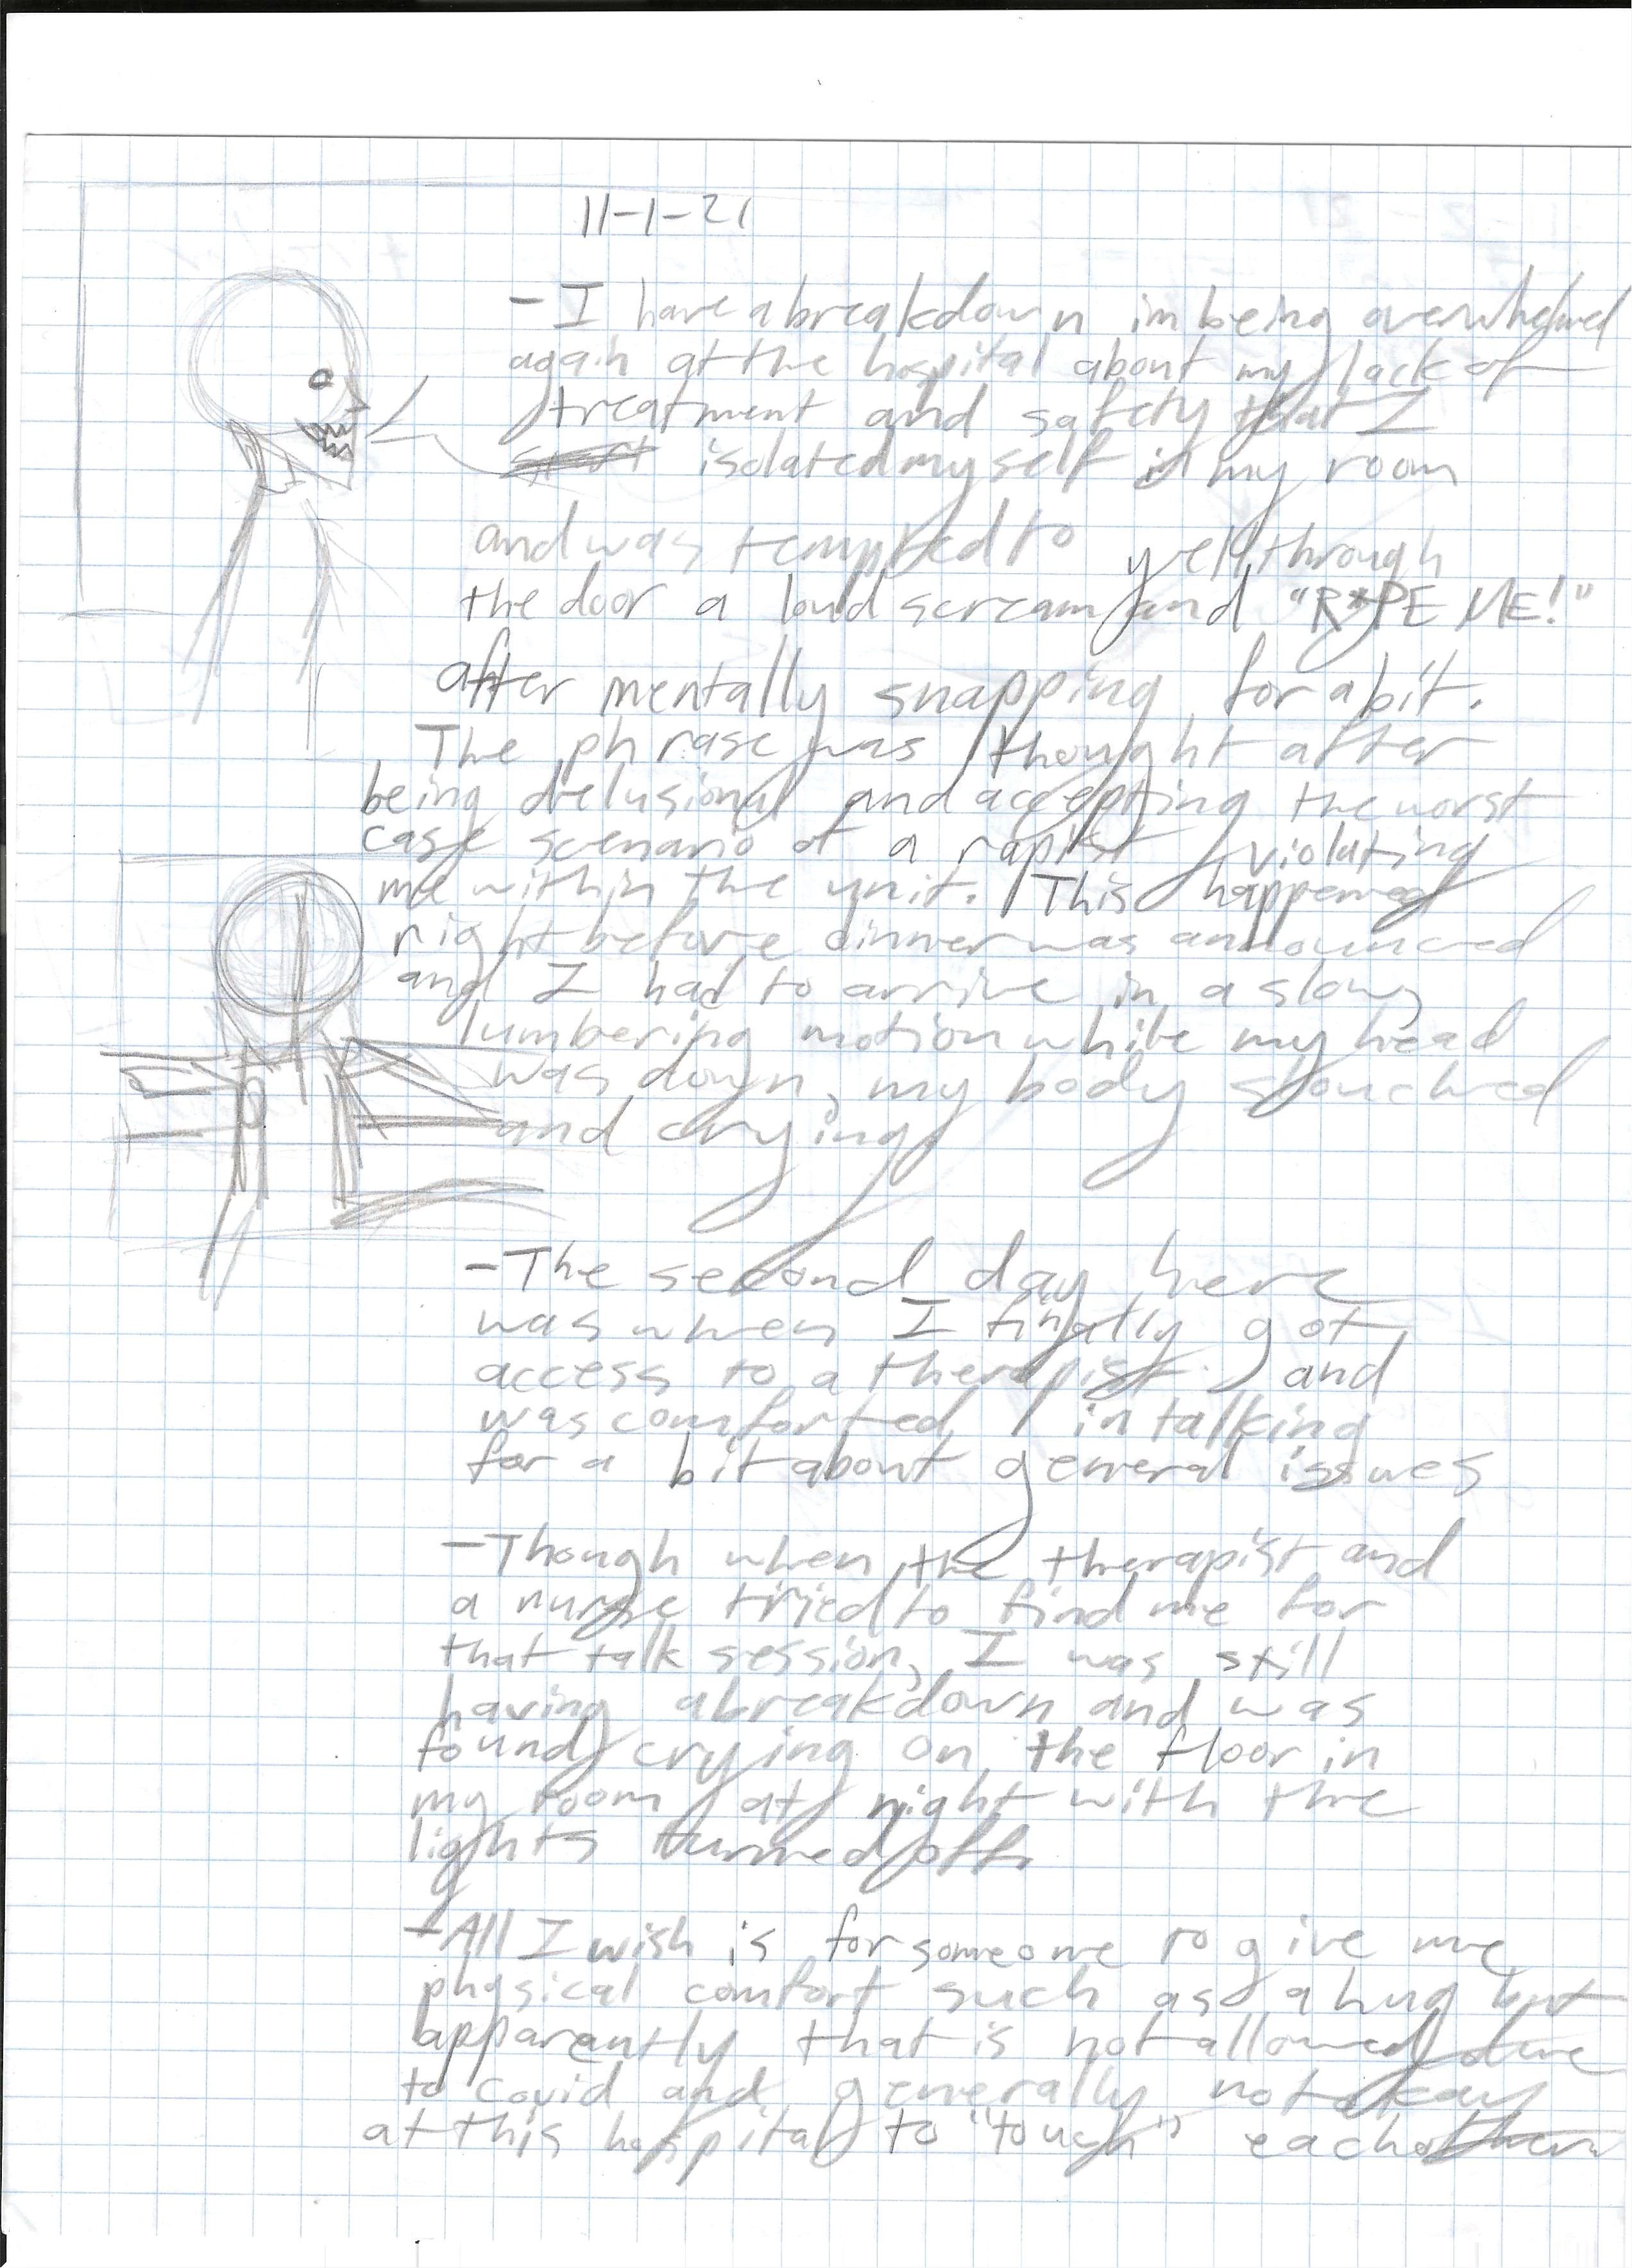 11-1-21
- I have a breakdown im being overwhelmed
again at the hospital about my lack of
treatment and safety that I
isolated myself in my room
and was tempted to yell through
the door a loud scream and "R*PE ME!"
after mentally snapping for a bit.
The phrase was thought after
being delusional and accepting the worst
case scenario of a rapist violating
me within the unit. This happened
right before dinner was announced
and I had to arrive in a slow,
lumbering motion while my head
was down, my body slouched
and crying.
- The second day here
was when I finally got
access to a therapist and
was comforted in talking
for a bit about general issues
- Though when the therapist and
a nurse tried to find me for
that talk session, I was still
having a breakdown and was
found crying on the floor in
my room at night with the
lights turned off.
- All I wish is for someone to give me
physical comfort such as a hug but
apparantly that is not allowed due
to covid and generally not okay
at this hospital to "tough" each other